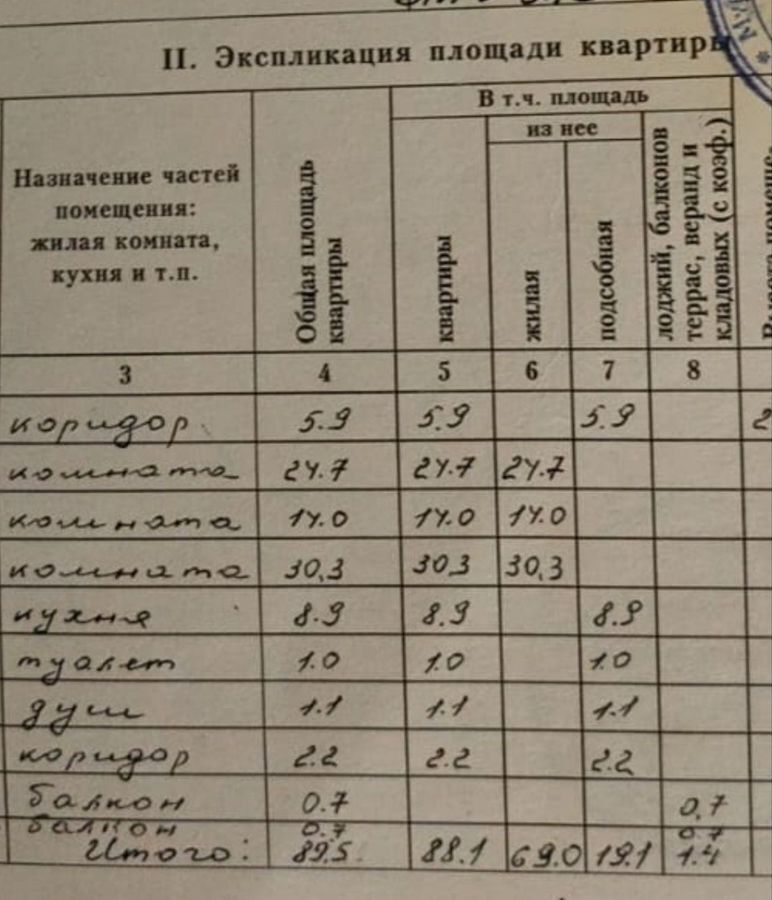 II. Экспликация площади квартиры
В т.ч. площадь
из нее
Назначение частей
помещения:
жилая комната,
кухня и т.п.
Общая площадь
квартиры
квартиры
жилая
подсобная
лоджий, балконов
террас, веранд и
кладовых (с коэф.)
3 4 5 6 7 8
коридор 5.9 5.9 5.9 2
комната 24.7 24.7 24.7
комната 14.0 14.0 14.0
комната 30,3 30,3 30,3
кухня 8.9 8.9 8.9
туалет 1.0 1.0 1.0
душ 1.1 1.1 1.1
коридор 2.2 2.2 2.2
балкон 0.7 0,7
балкон 0.7 0.7
Итого: 89.5 88.1 69.0 19.1 1.4